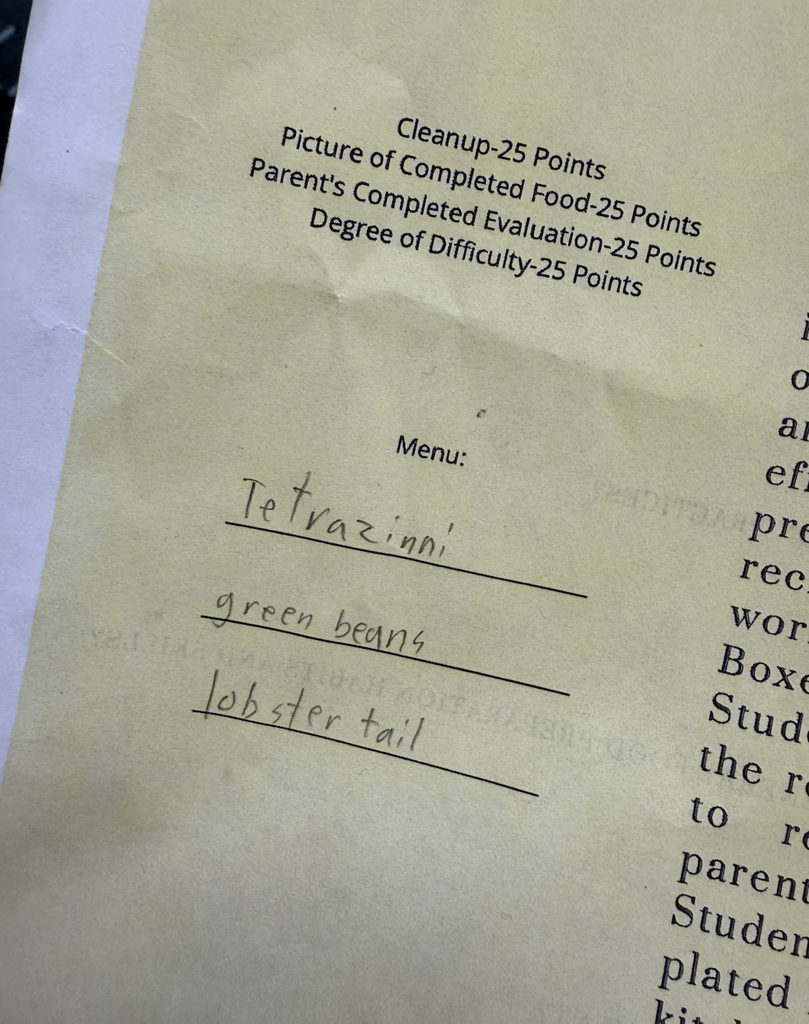 Cleanup-25 Points
Picture of Completed Food-25 Points
Parent's Completed Evaluation-25 Points
Degree of Difficulty-25 Points
Menu:
Tetrazinni
green beans
lobster tail
pre
rec
wor
Boxe
Stud
the r
to re
parent
Studen
plated